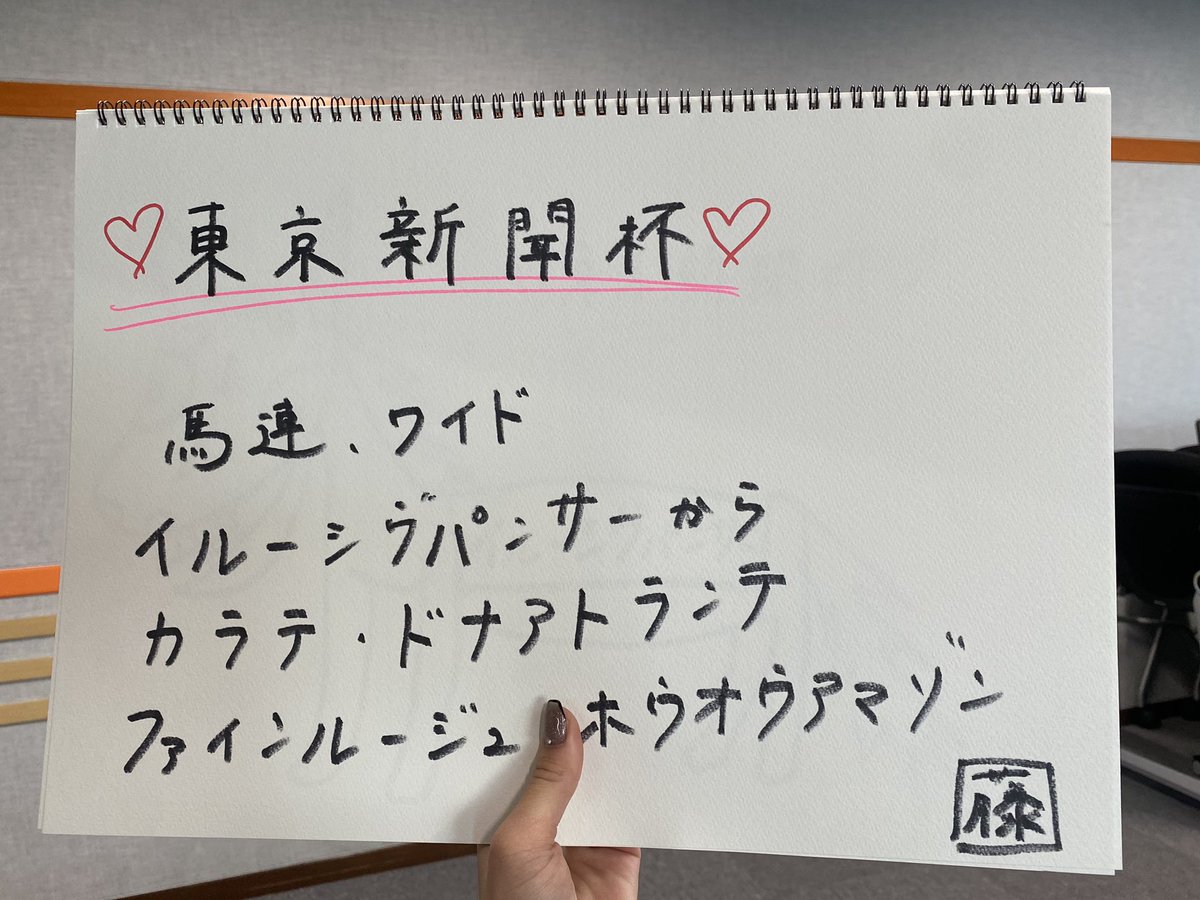 東京新開杯
馬連、ワイド
イルーシヴパンサーから
カラテ・ドナアトランテ
ファインルージュ ホウオウアマゾン
藤